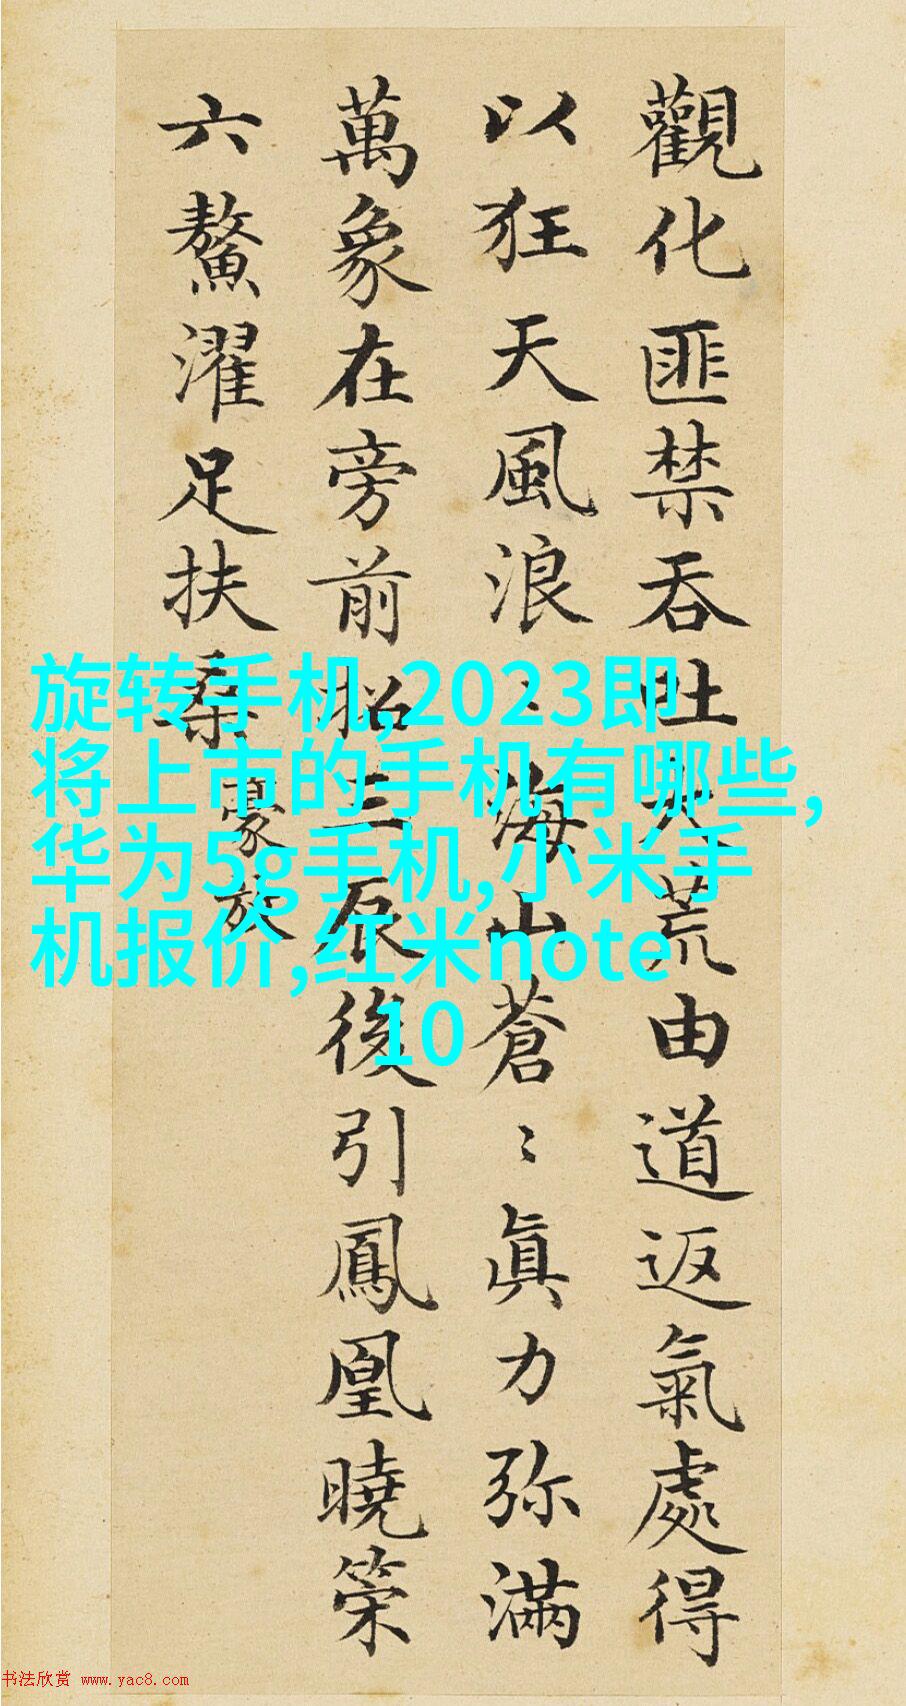 觀化匪禁吞吐大荒由道返氣處得
以狂天風浪〻海山蒼〻眞力弥滿
萬象在旁前招三辰後引鳳凰曉策
六鰲濯足扶桑
豪放
旋转手机,2023即
将上市的手机有哪些,
华为5g手机,小米手
机报价,红米note
10
书法欣赏 www.yac8.com